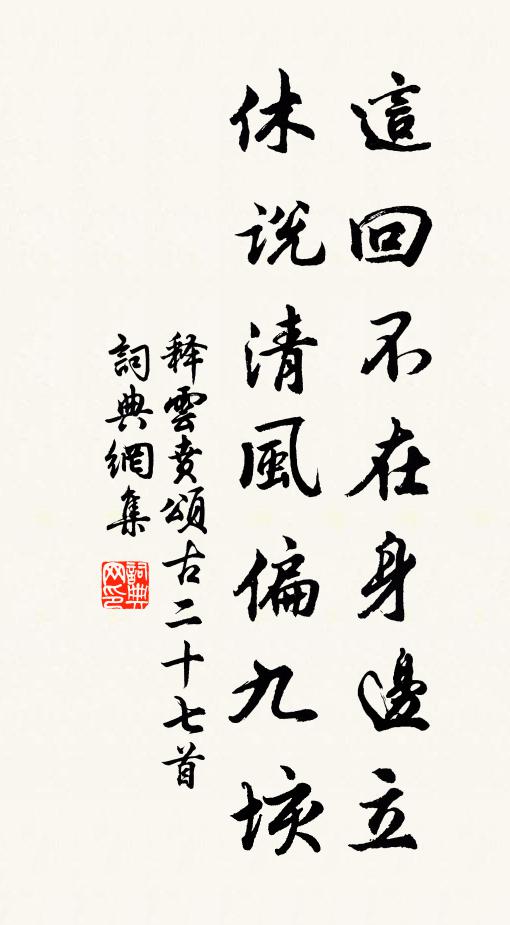 這回不在身邊立
休説清風偏九垓
釋雲賁頌古二十七首
詞典網集
詞典网印